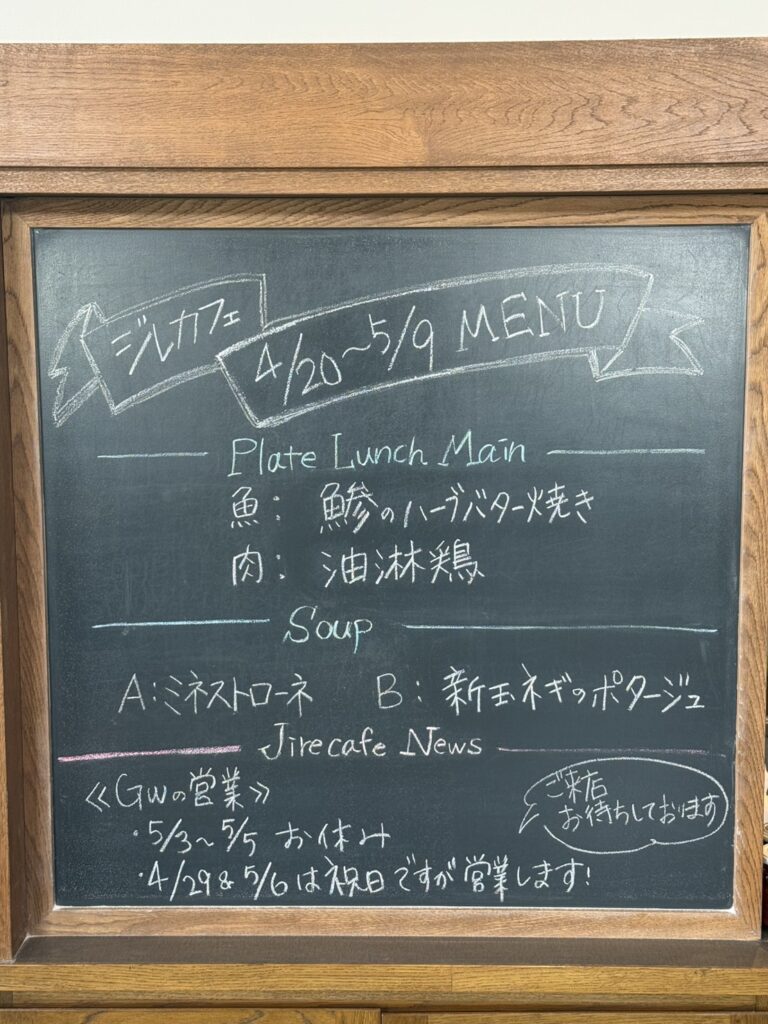 ジルカフェ
4/20～5/9 MENU
Plate Lunch Main
魚： 鯵のハーブバター焼き
肉： 油淋鶏
Soup
A：ミネストローネ B：新玉ネギのポタージュ
Jirecafe News
≪GWの営業≫
・5/3～5/5 お休み
・4/29&5/6は祝日ですが営業します!
ご来店
お待ちしております